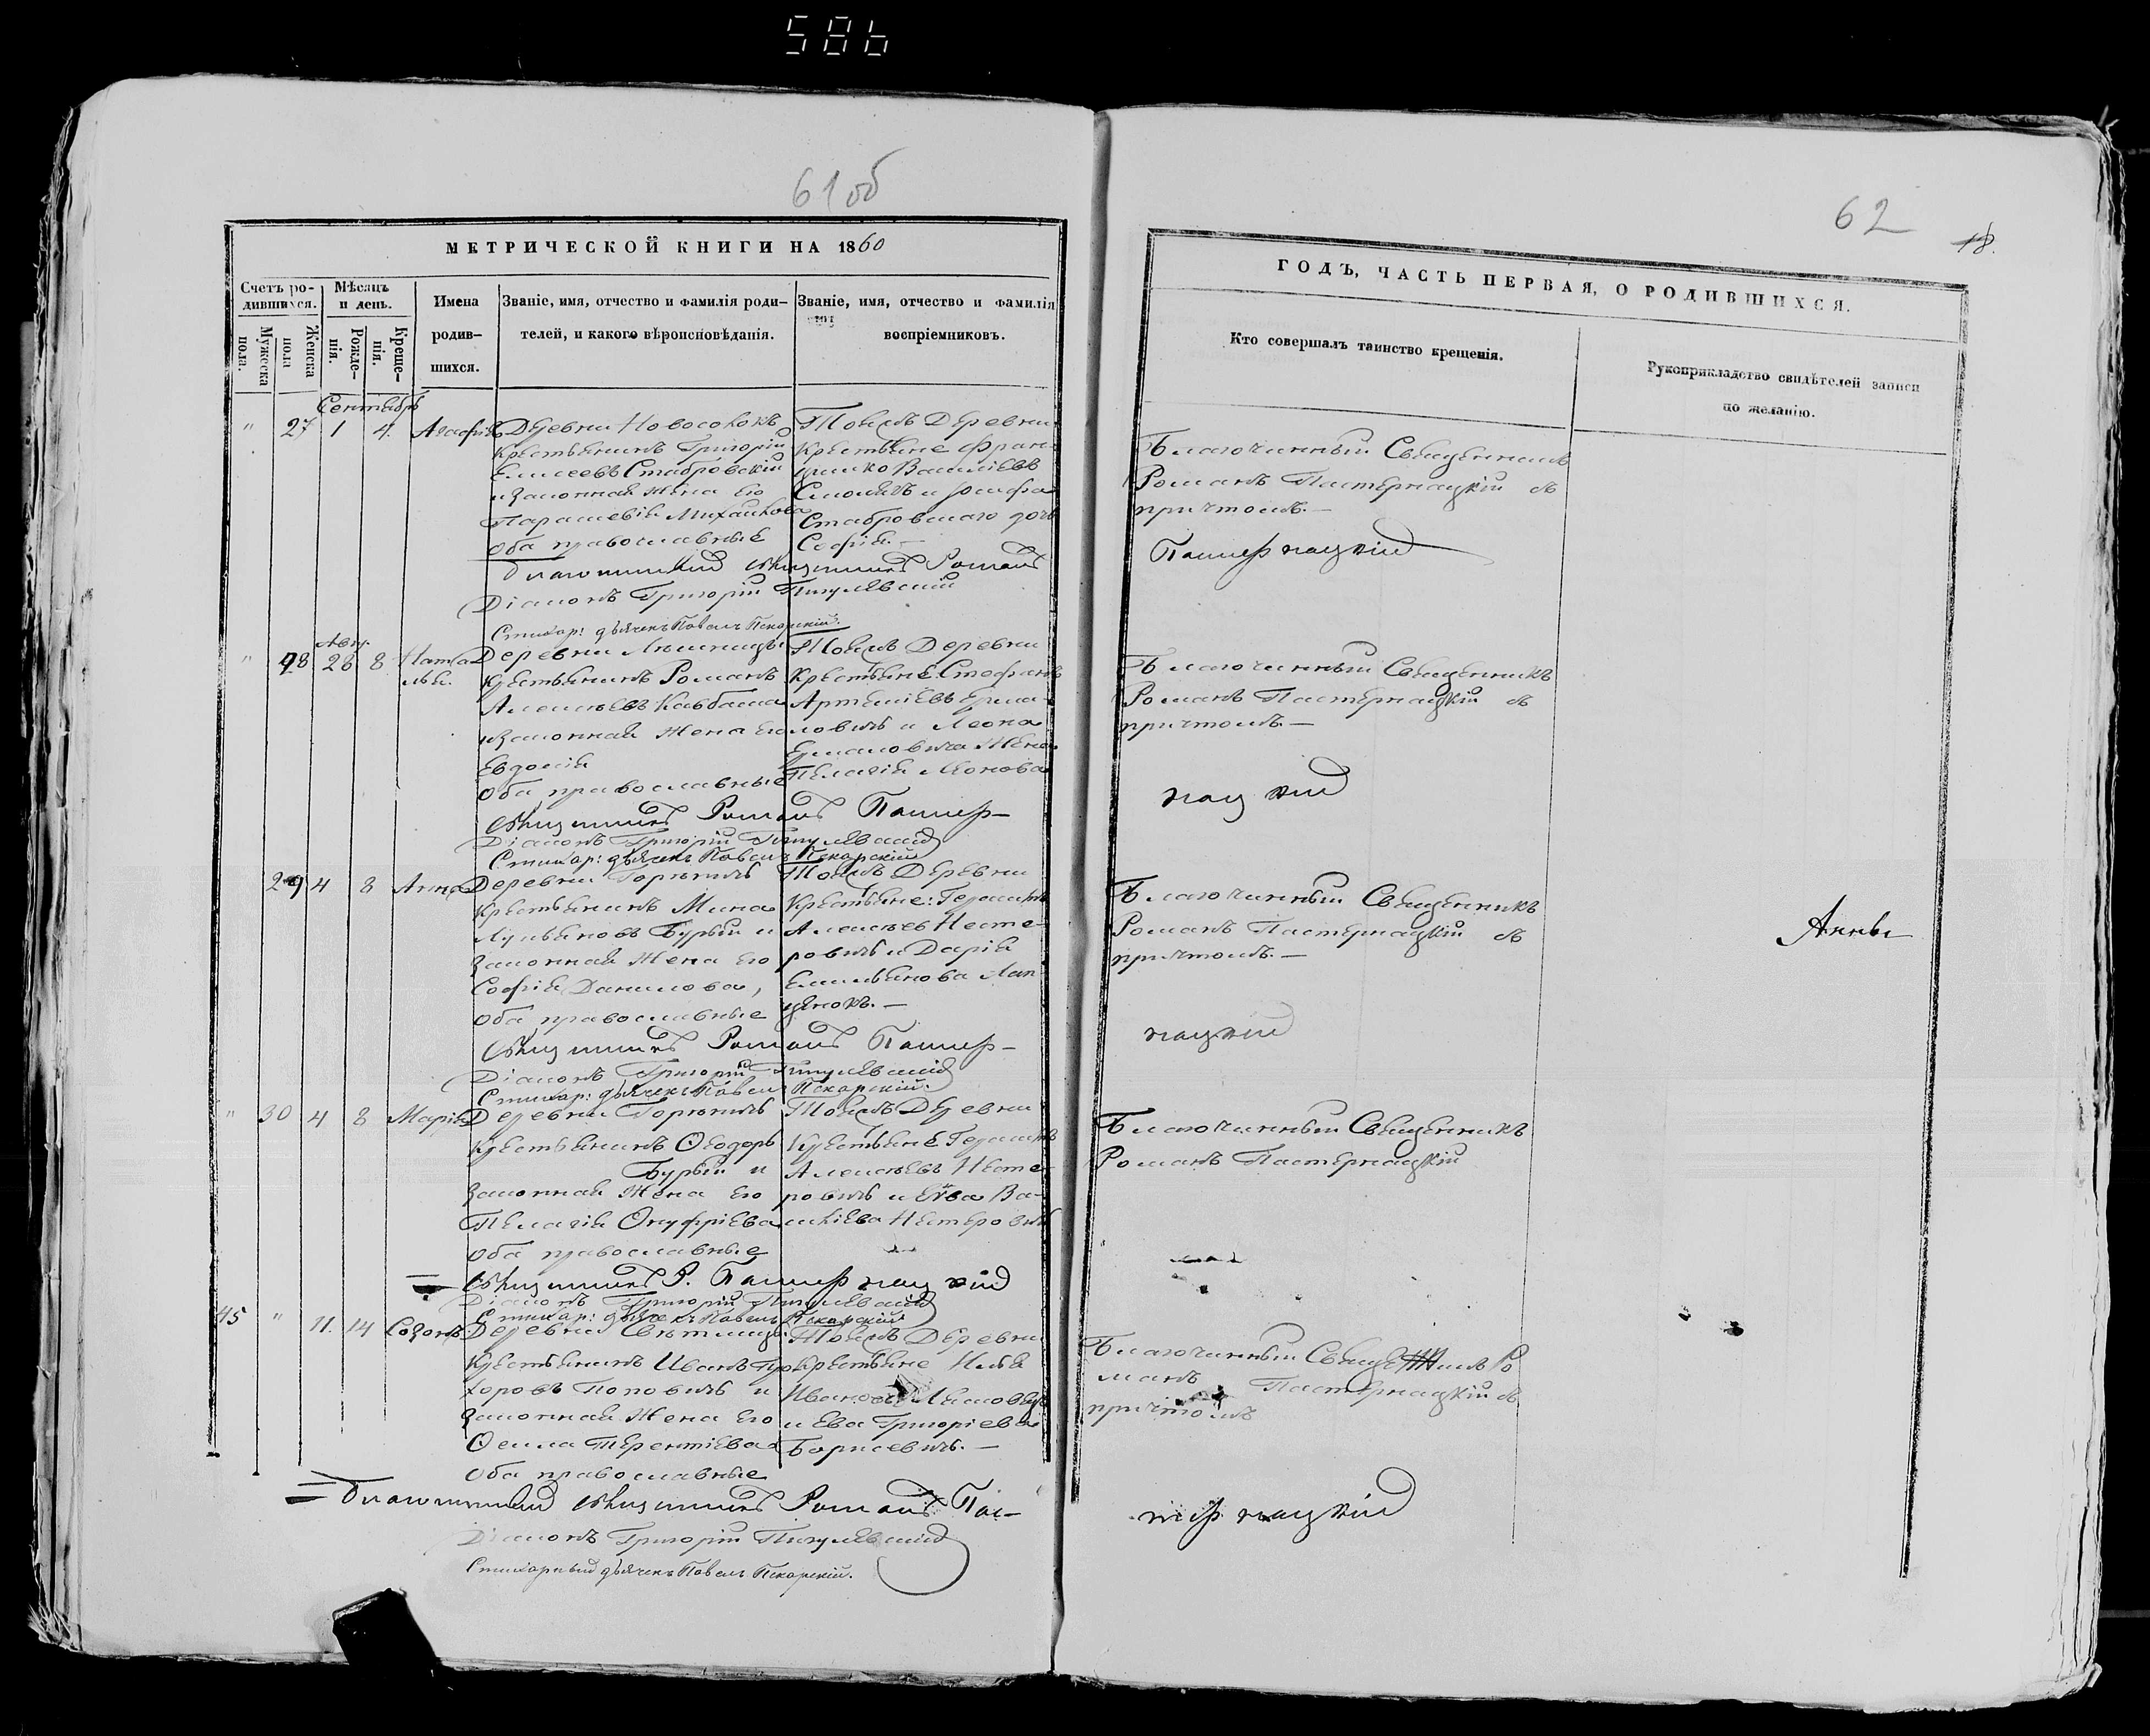 586
61 об
МЕТРИЧЕСКОЙ КНИГИ НА 1860
Счетъ ро-
дившихся.
Мѣсяцъ
и день.
Мужеска
пола.
Женска
пола
Рожде-
нія.
Креще-
нія.
Имена
родив-
шихся.
Званіе, имя, отчество и фамилія роди-
телей, и какого вѣроисповѣданія.
Званіе, имя, отчество и фамилія
воспріемниковъ.
Сентябрь
" 27 1 4
Деревни Новосёлокъ
крестьянинъ Григорій
Елисеевъ Стабровскій
и законная жена его
Параскевія Михайлова
оба православные
Тойжъ Деревни
крестьяне Фран-
цишко Василіевъ
и Іосифа
Стабровскаго дочь
Софія. —
Благочинный Священникъ Романъ
Діаконъ Григорій Пигулевскій
Стихар: дьячекъ Павелъ Пскарскій.
Авгу.
" 28 26 8 Ната-
лія.
Деревни
крестьянинъ Романъ
Алексѣевъ Кавбаса
и законная жена его
Евдокія
оба православные
Тойжъ Деревни
крестьяне: Стефанъ
Артеміевъ Ерма-
ловичъ и Леона
Ермаловича жена
Пелагія Леонова
Священникъ Романъ Пастер-
Діаконъ Григорій Пигулевскій
Стихар: дьячекъ Павелъ Пскарскій
29 4 8 Анна
Деревни
крестьянинъ Мина
Лукьяновъ Бурый и
законная жена его
Софія Данилова,
оба православные
Тойжъ Деревни
крестьяне:
Алексѣевъ Несте-
ровичъ и Дарія
Емельянова Лап-
ценокъ. —
Священникъ Романъ Пастер-
Діаконъ Григорій Пигулевскій
Стихар: дьячекъ Павелъ Пскарскій.
" 30 4 8 Марія
Деревни
крестьянинъ Ѳеодоръ
Бурый и
законная жена его
Пелагія Онуфріева
оба православные
Тойжъ Деревни
крестьяне
Алексѣевъ Несте-
ровичъ и Ева Ва-
силіева Нестеровичъ
Священникъ Р. Пастернацкій
Діаконъ Григорій Пигулевскій
Стихар: дьячекъ Павелъ Пскарскій
45 " 11. 14 Созонтъ
Деревни
крестьянинъ Иванъ Про-
хоровъ Поповичъ и
законная жена его
Ѳекла Терентіева
оба православные
Тойжъ Деревни
крестьяне Илья
Ивановъ
и Ева Григоріева
Борисевичъ. —
Благочинный Священникъ Романъ Пас-
Діаконъ Григорій Пигулевскій
Стихарный дьячекъ Павелъ Пскарскій.
62
18.
ГОДЪ, ЧАСТЬ ПЕРВАЯ, О РОДИВШИХСЯ.
Кто совершалъ таинство крещенія.
Рукоприкладство свидѣтелей записи
по желанію.
Благочинный Священникъ
Романъ Пастернацкій съ
причтомъ. —
Пастернацкій
Благочинный Священникъ
Романъ Пастернацкій съ
причтомъ. —
нацкій
Благочинный Священникъ
Романъ Пастернацкій съ
причтомъ. —
Анны
нацкій
Благочинный Священникъ
Романъ Пастернацкій
Благочинный Священникъ Ро
манъ Пастернацкій съ
причтомъ
тернацкій